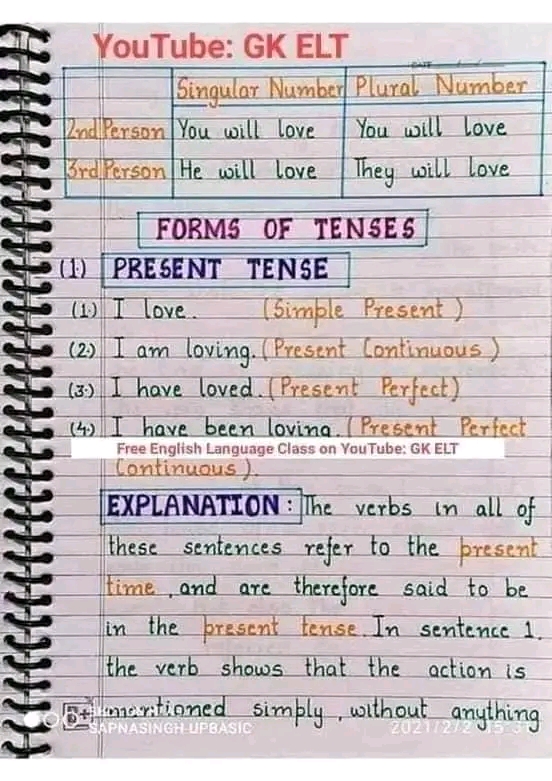 YouTube: GK ELT
DATE
Singular Number Plural Number
2nd Person You will love You will love
3rd Person He will love They will love
FORMS OF TENSES
(1) PRESENT TENSE
(1.) I love. (Simple Present)
(2.) I am loving. (Present Continuous)
(3.) I have loved. (Present Perfect)
(4.) I have been loving. (Present Perfect
Free English Language Class on YouTube: GK ELT
Continuous).
EXPLANATION : The verbs in all of
these sentences refer to the present
time, and are therefore said to be
in the present tense. In sentence 1.
the verb shows that the action is
mentioned simply, without anything
SAPNASINGH UPBASIC
2021/2/2 15:31